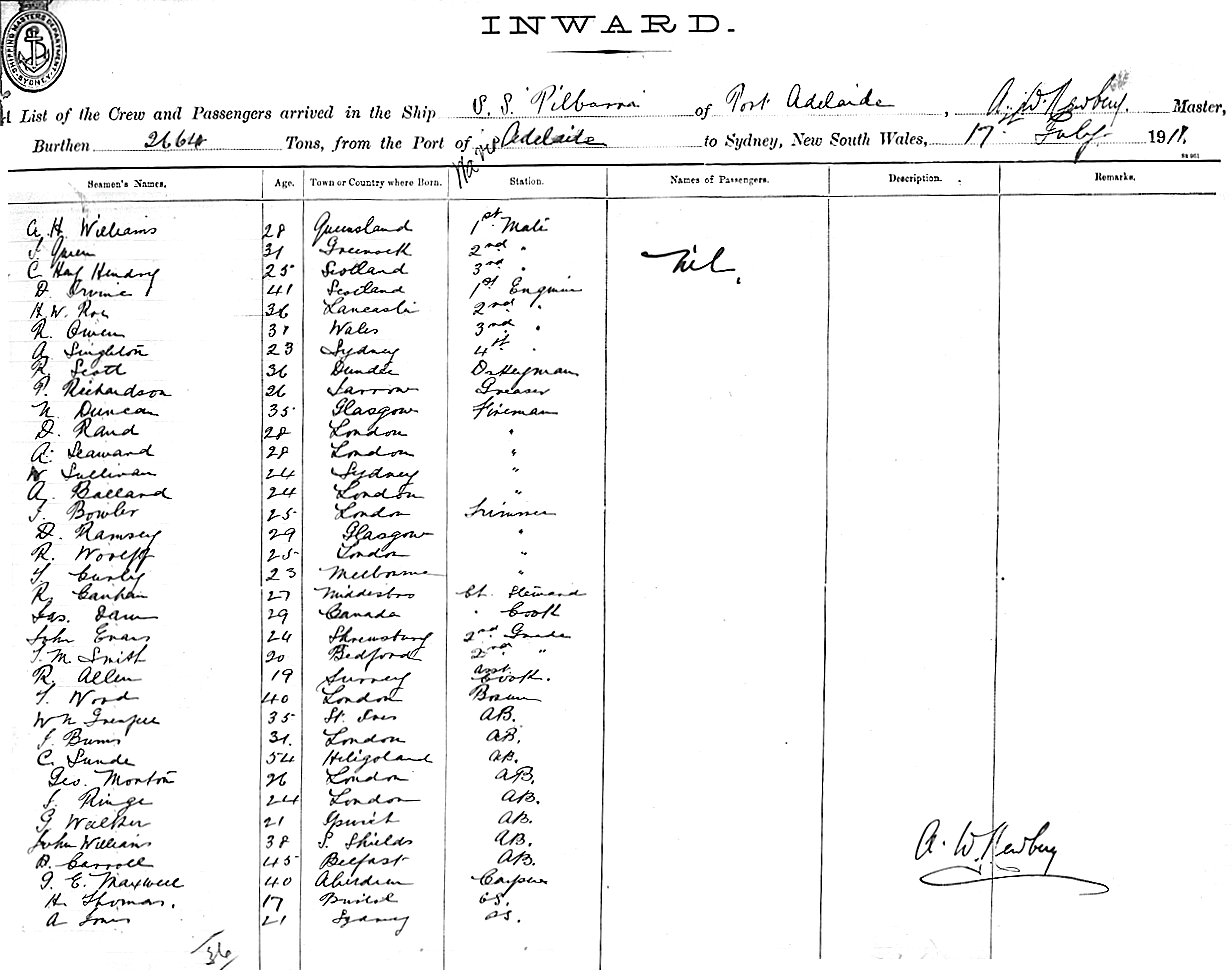 SHIPPING MASTERS DEPARTMENT SYDNEY
INWARD.
List of the Crew and Passengers arrived in the Ship S. S. Pilbarra of Port Adelaide, A. W. Newbury. Master,
Burthen 2664 Tons, from the Port of via Adelaide to Sydney, New South Wales, 17 July 1911.
Seamen's Names. Age. Town or Country where Born. Station. Names of Passengers. Description. Remarks.
A. H. Williams 28 Queensland 1st Mate
31 Greenock 2nd "
C Hay Hendry 25 Scotland 3rd " Nil.
D. Irvine 41 Scotland 1st Engineer
H. W. 36 Lancaster 2nd "
R. Owen 38 Wales 3rd "
A. Singleton 23 Sydney 4th "
R. Scott 36 Dundee Dkeyman
P. Richardson 26 Jarrow Greaser
N. Duncan 35 Glasgow Fireman
D. Rand 28 London "
A. Seaward 28 London "
W Sullivan 24 Sydney "
A. Balland 24 London "
J. Bowler 25 London Trimmer
D. Ramsey 29 Glasgow "
R. 25 London "
T. Curley 23 Melbourne "
R. Canham 27 Middesbro Ch. Steward
Jas. 29 Canada " Cook
John Evans 24 Shrewsbury 2nd Grade
T. M. Smith 20 Bedford 2nd "
R. Allen 19 Surrey Asst Cook.
T. Wood 40 London Bosun
Wm 35 St. Ives AB.
J. Burns 31. London AB.
C. Sunde 54 Heligoland AB.
Geo. Morton 26 London AB.
J. Ringe 24 London AB.
G Walker 21 Ipswich AB.
John Williams 38 S. Shields AB.
B. Carroll 45 Belfast AB.
J. E. Maxwell 40 Aberdeen
H. Thomas. 17 Bristol OS.
A Jones 21 Sydney OS.
A. W. Newbury
36